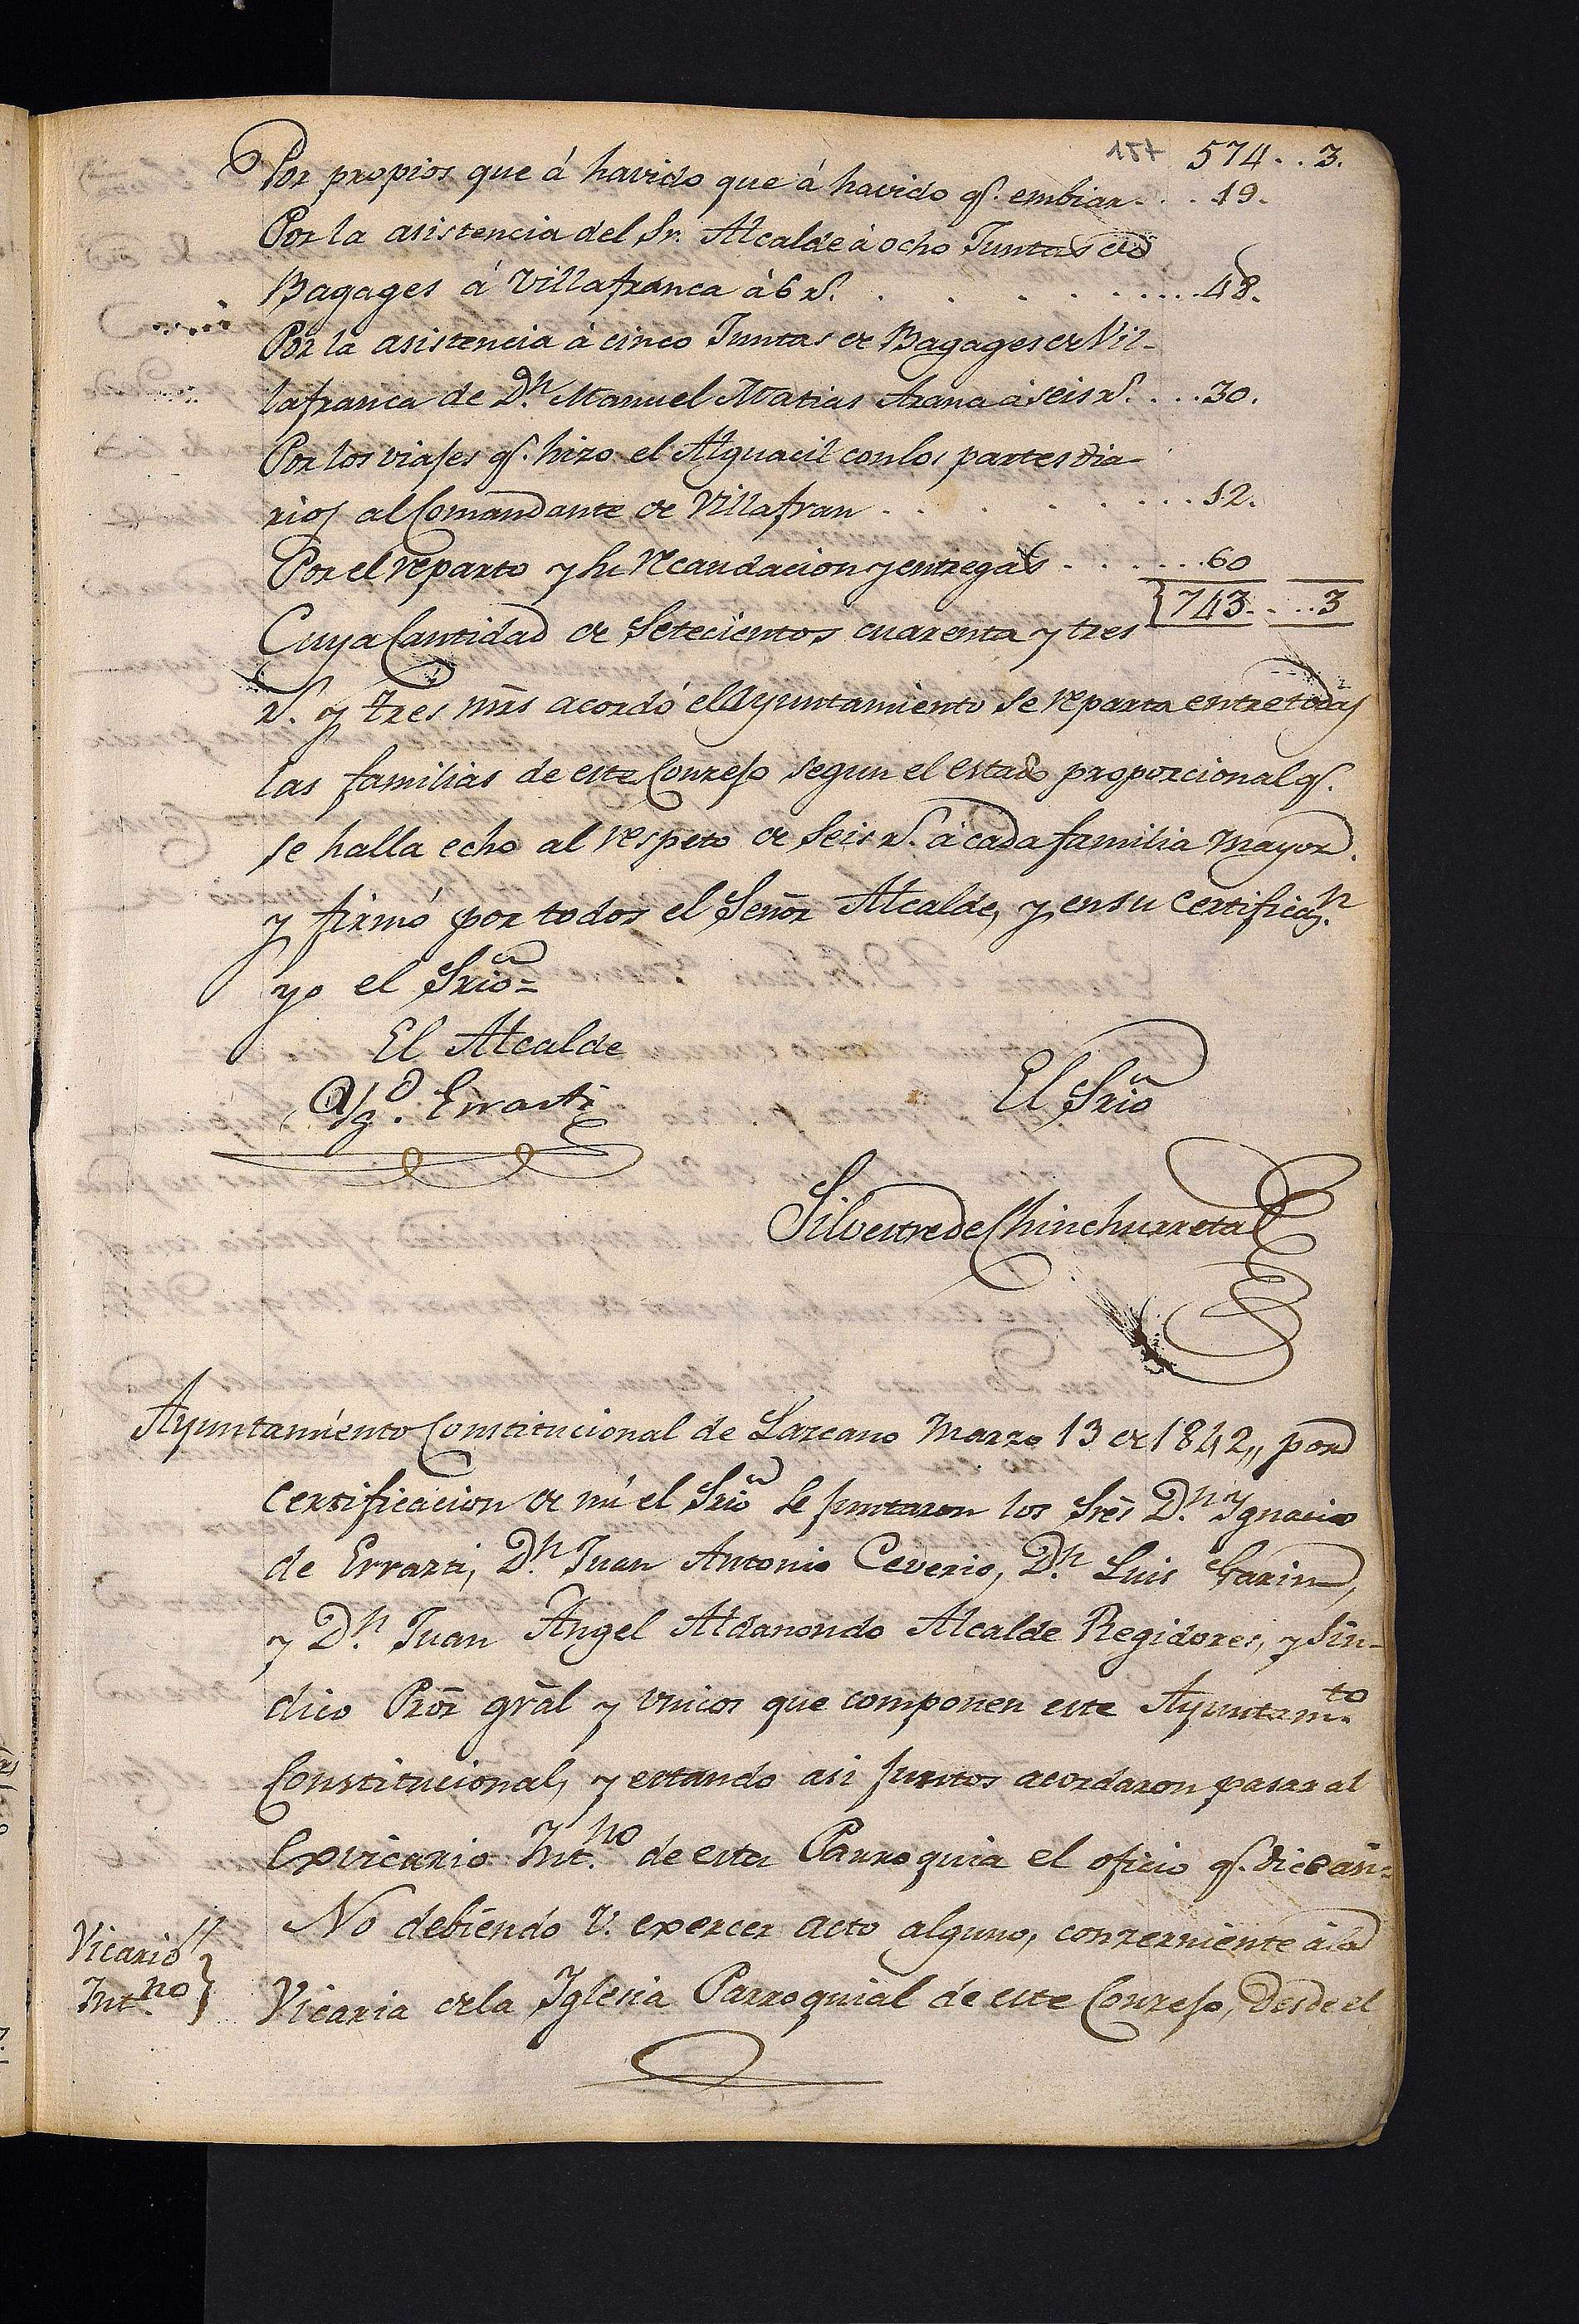 157 574. . 3.
Por propios que á havido que á havido q.e embiar. . . 19.
Por la asistencia del Sr. Alcalde á ocho Juntas de
Bagages á Villafranca á 6 r.s . . . . . . . . 48.
Por la asistencia á cinco Juntas de Bagages de Vil-
lafranca de D.n Manuel Matias Arana á seis r.s . . . 30.
Por los viajes q.e hizo el Alguacil con los partes dia-
rios al Comandante de Villafran . . . . . . . . 12.
Por el reparto y su recaudacion y entregas . . . . . . 60
743. . . . 3
Cuya Cantidad de Setecientos cuarenta y tres
r.s y tres mrs acordó el Ayuntamiento se reparta entre todas
las familias de este Conzejo segun el estado proporcional q.e
se halla echo al respeto de seis r.s á cada familia mayor.
y firmó por todos el Señor Alcalde, y en su certificaz.n
yo el Srio=
El Alcalde
Ygº. Errasti
El Srio
Silvestre de Chinchurreta
Ayuntamiento Constitucional de Lazcano Marzo 13 de 1842,, por
Certificacion de mi el Srio se juntaron los Sres D.n Ygnacio
de Errazti, D.n Juan Antonio Ceverio, D.n Luis Garin,
y D.n Juan Angel Aldanondo Alcalde Regidores, y Sin-
dico Pror gral y unicos que componen este Ayuntam.to
Constitucional, y estando asi juntos acordaron pasar al
Exvicario Int.no de esta Parroquia el oficio q.e dice asi=
No debiendo V. exercer acto alguno, conzerniente á la
Vicario
Int.no }
Vicaria de la Iglesia Parroquial de este Conzejo, desde el